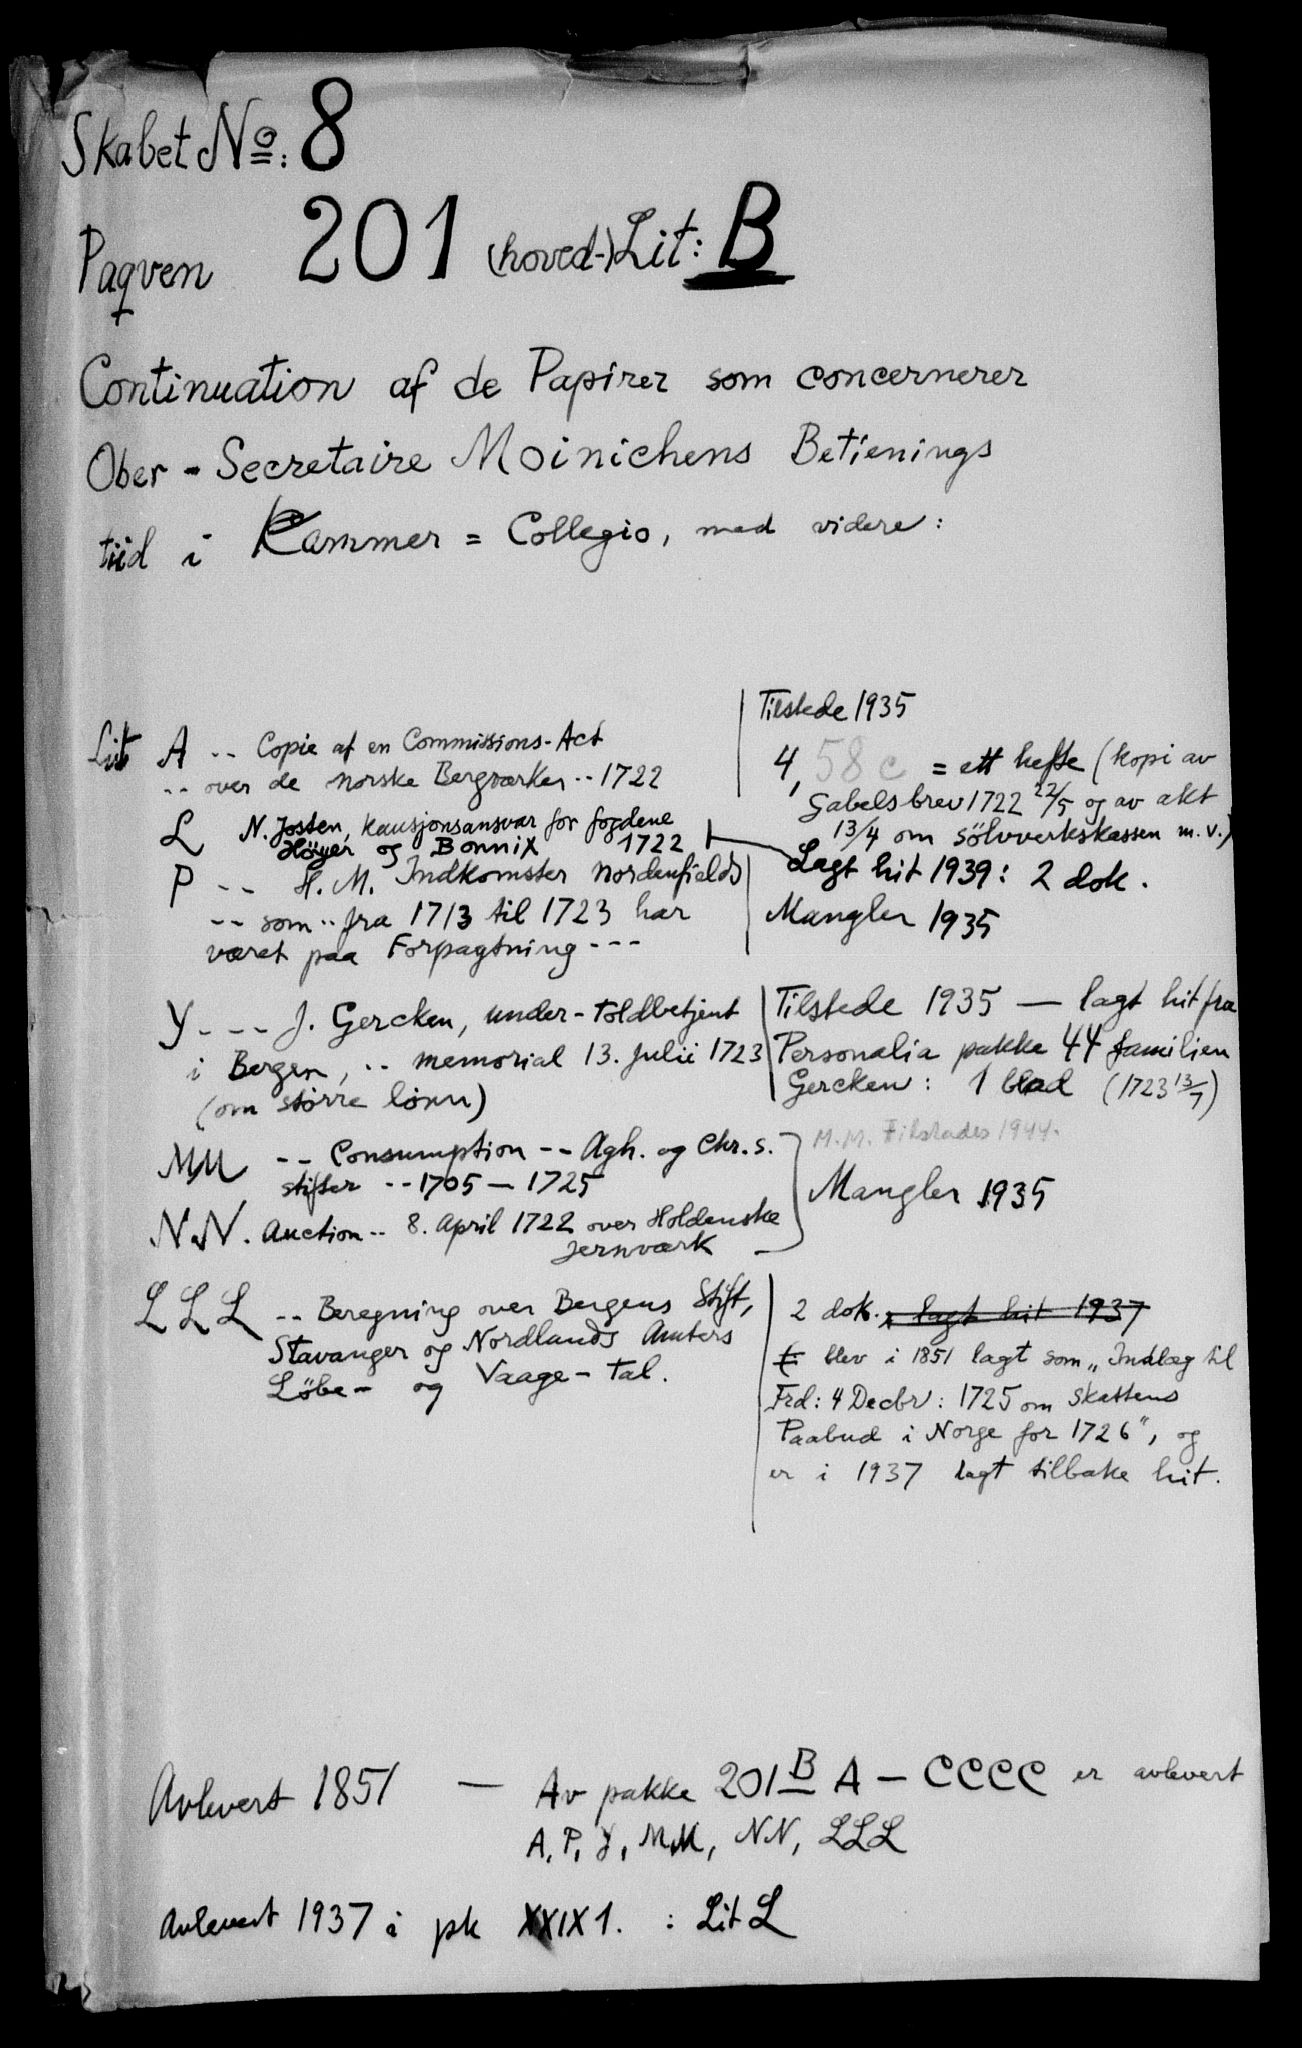 Skabet No: 8
Paqven 201 (hoved-) Lit: B
Continuation af de Papirer som concernerer
Ober-Secretaire Moinichens Betienings
tiid i Cammer = Collegio, med videre:
Tilstede 1935
Lit A -- Copie af en Commissions-Act
-- over de norske Bergværker -- 1722
4, 58 c = ett hefte (kopi av
Gabels brev 1722 22/5 og av akt
13/4 om sölvverkskassen m.v.)
L N. Josten, kausjonsansvar for fogdene
Höyer og Bonnix 1722
Lagt hit 1939: 2 dok.
P -- H. M. Indkomster Nordenfields
-- som -- fra 1713 til 1723 har
været paa Forpagtning ---
Mangler 1935
Y --- J. Gercken, under-toldbetjent
i Bergen, -- memorial 13. Julii 1723
(om større lønn)
Tilstede 1935 — lagt hit fra
Personalia pakke 44 familien
Gercken: 1 blad (1723 13/7)
MM -- Consumption -- Agh. og Chr.s.
stifter -- 1705 — 1725
M.M. Tilstades 1944.
Mangler 1935
N.N. Auction -- 8. April 1722 over Holdenske
Jernværk
LLL -- Beregning over Bergens Stift,
Stavanger og Nordlands Amters
Löbe- og Vaage-Tal.
2 dok. lagt hit 1937
blev i 1851 lagt som „Indlæg til
Frd: 4 Decbr: 1725 om Skattens
Paabud i Norge for 1726", og
er i 1937 lagt tilbake hit.
Avlevert 1851 — Av pakke 201 B A — CCCC er avlevert
A, P, Y, MM, NN, LLL
Avlevert 1937 i pk XXIX 1. : Lit L